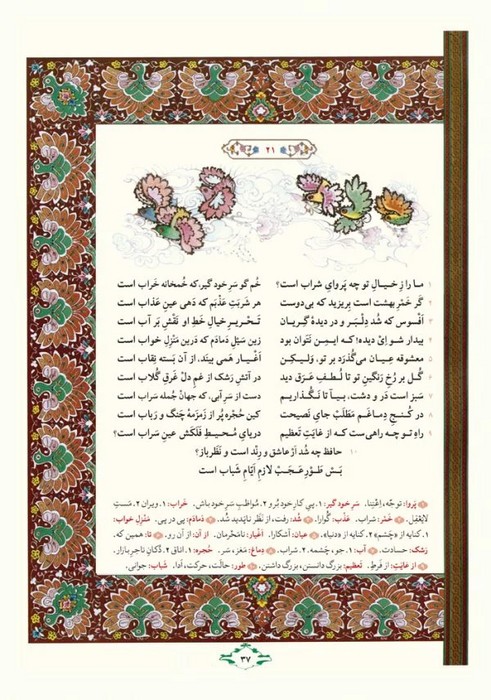 ۲۱
۱ ما را ز خیالِ تو چه پَروایِ شراب است؟ خُم گو سَرِ خود گیر، که خُمخانه خَراب است
گَر خَمْرِ بِهشت است بِریزید که بی‌دوست هر شَربَتِ عَذْبَم که دَهی عینِ عَذاب است
۳ اَفْسوس که شُد دِلْبَر و در دیدۀ گِریان تَحْریرِ خیالِ خَطِ او نَقْشِ بَر آب است
بیدار شو اِیْ دیده! که ایمن نَتَوان بود زین سَیْلِ دَمادَم که دَرین مَنْزِلِ خواب است
۵ معشوقه عیان می‌گُذَرَد بر تو، وَلیکِن اَغْیار هَمی بیند، از آن بَسته نِقاب است
گُل بر رُخِ رَنگینِ تو تا لُطفِ عَرَق دید در آتَشِ رَشک از غَمِ دِل غَرقِ گُلاب است
۷ سَبز است دَر و دَشت، بیا تا نَگُذاریم دست از سَرِ آبی، که جَهان جُمله سَراب است
در کُنجِ دِماغَم مَطَلَب جایِ نَصیحت کین حُجره پُر از زَمزَمۀ چَنگ و رَباب است
۹ راهِ تو چه راهی‌ست که از غایَتِ تَعظیم دریایِ مُحیطِ فَلَکَش عینِ سَراب است؟
۱۰ حافظ چه شُد اَرْ عاشق و رِنْد است و نَظَرباز؟
بَس طُوْرِ عَجَبْ لازمِ اَیّامِ شَباب است
۱ پَروا: توجّه، اِعْتِنا. سَرِ خود گیر: ۱. پی کارِ خود بُرو ۲. مُواظبِ سَرِ خود باش. خَراب: ۱. ویران ۲. مَستِ
لایَعْقِل. ۲ خَمْر: شراب. عَذْب: گُوارا. ۳ شُد: رفت، از نَظَر ناپَدید شُد. ۴ دَمادَم: پی در پی. مَنْزِلِ خواب:
۱. کنایه از «چَشم» ۲. کنایه از «دنیا». ۵ عیان: آشکارا. اَغْیار: نامَحرمان. از آن: از آن رو. ۶ تا: همین که.
رَشک: حسادت. ۷ آب: ۱. جو، چَشمه. ۲. شراب. ۸ دِماغ: مَغز، سَر. حُجره: ۱. اتاق ۲. دُکانِ تاجرِ بازار.
۹ از غایَتِ: از فَرطِ. تَعظیم: بزرگ دانستن، بزرگ داشتن. ۱۰ طَور: حالَت، حرکت، اَدا. شَباب: جوانی.
۳۷